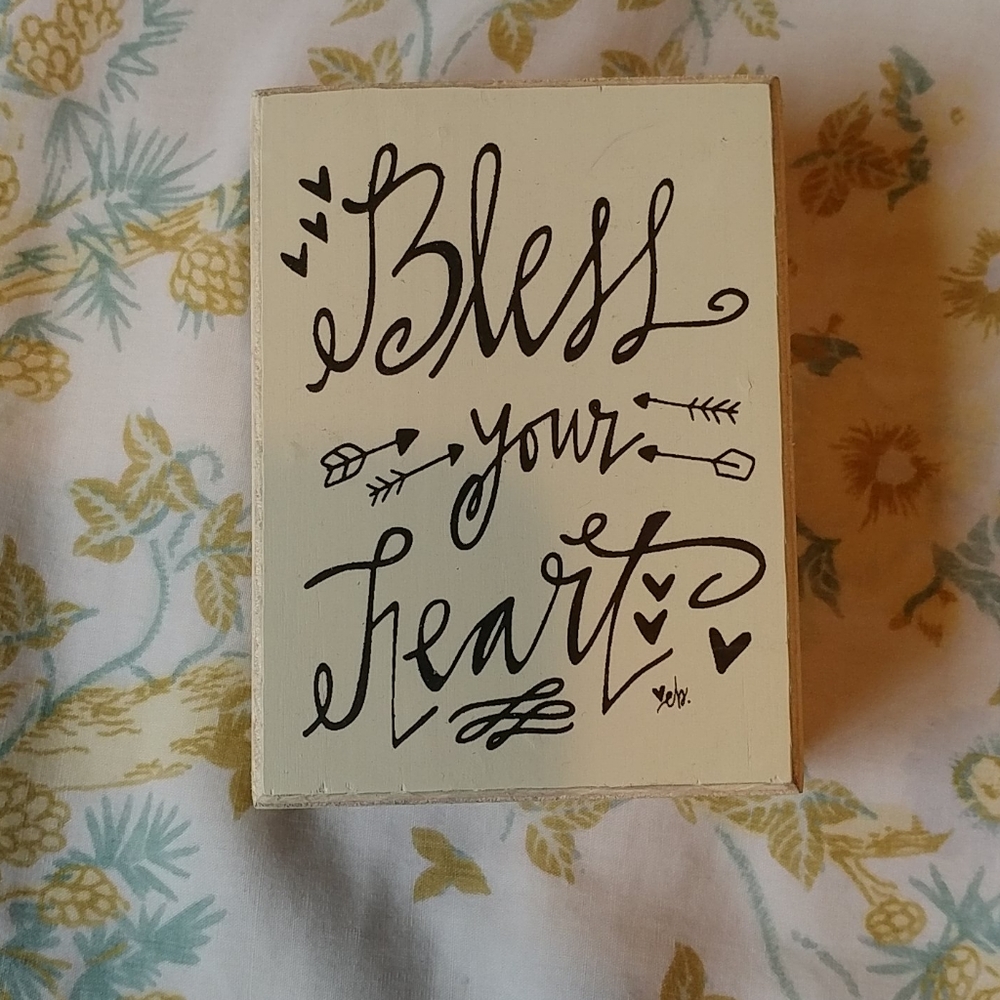 Bless
your
heart
eb.